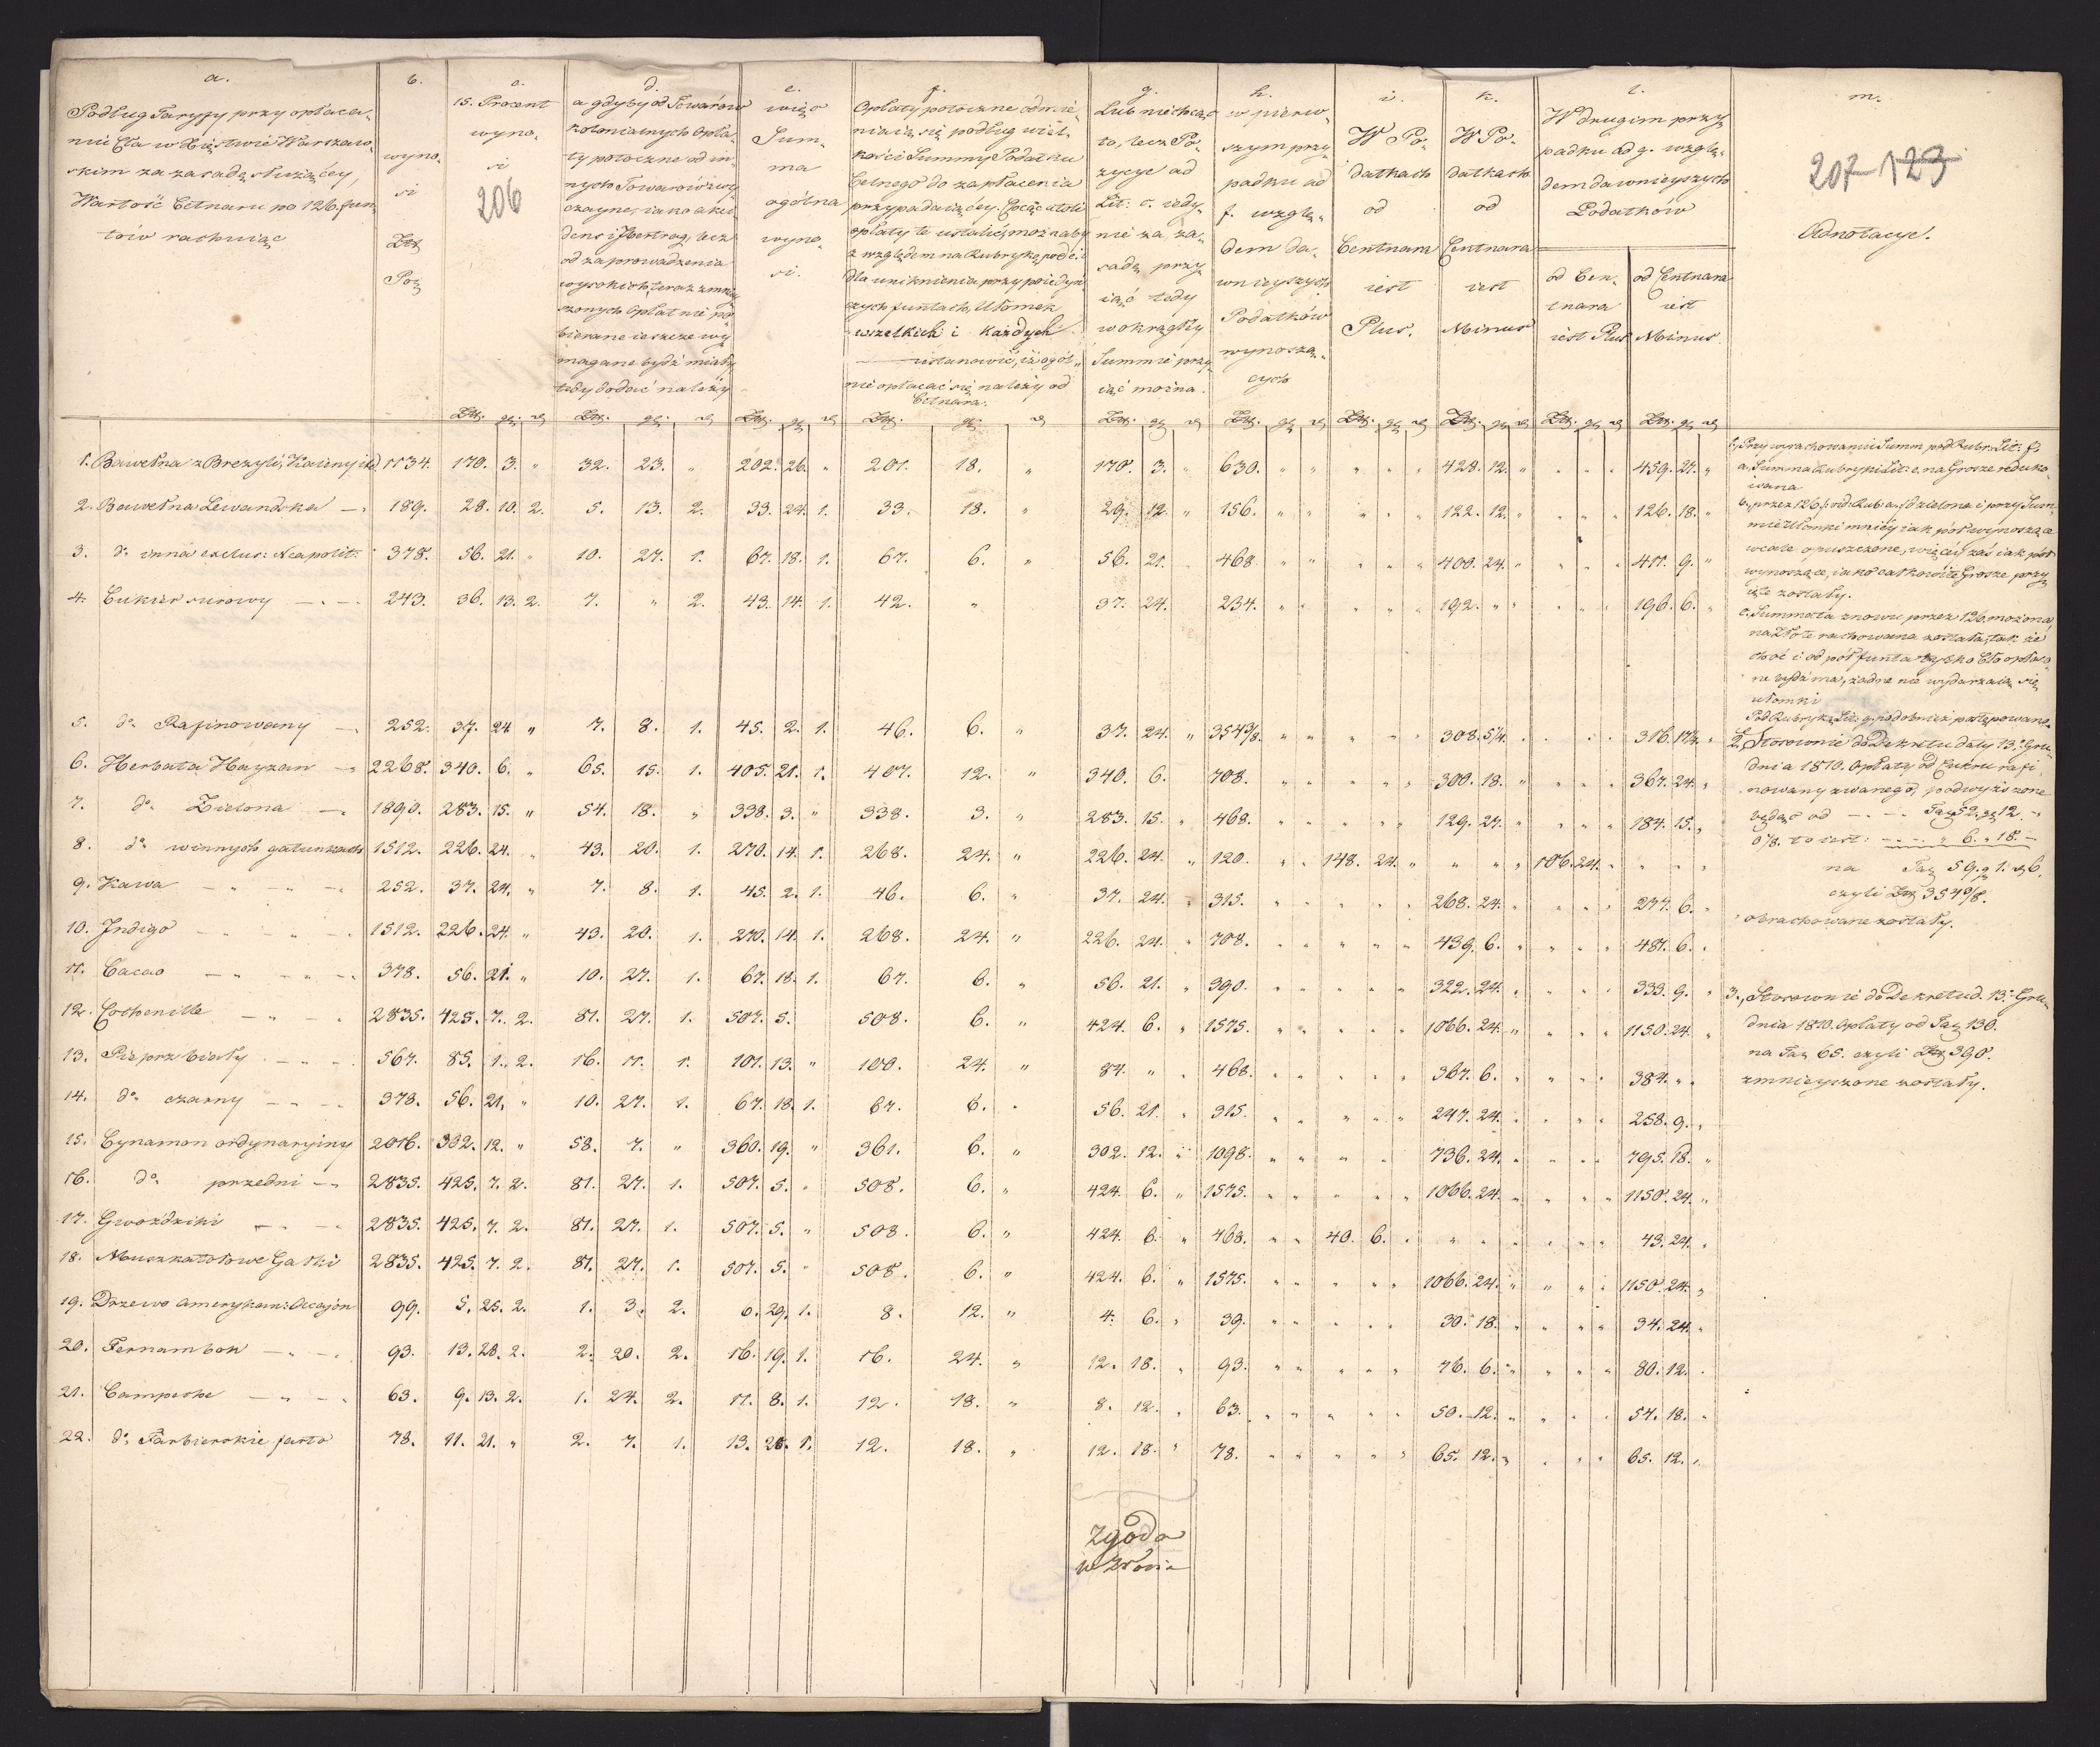 a.
Podług Taryfy przy opłaca-
niu Cła w Xięstwie Warszaw-
skim za zasadę służącéy,
Wartość Cetnaru po 126. fun-
tów rachuiąc
b.
wyno-
si
c.
15. Procent
wyno-
si
206
d.
a gdyby od Towarów
kolonialnych Opła-
ty potoczne od in-
nych Towarów zwy-
czayne, iako akci-
dens i Ibertrag, lecz
od zaprowadzenia
wysokich, teraz zmniey-
szonych Opłat nie po-
bierane ieszcze wy-
magane bydź miały,
tedy dodać należy
e.
więc
Sum-
ma
ogólna
wyno-
si.
f.
Opłaty potoczne odmie-
niaią się podług wiel-
kości Summy Podatku
Celnego do zapłacenia
przypadaiącéy. Chcąc atoli
opłaty te ustalić, możnaby
z względem na Rubrykę pod e.
dla uniknienia przy poiedyń-
czych funtach, Ułomek
wszelkich i każdych
ustanowić, iż ogól-
nie opłacać się należy od
Cetnara.
g.
Lub niechcąc
to, lecz Po-
zycye ad
Lit: c. iedy-
nie za za-
sadę przy-
iąć tedy
w okrągłéy
Summie przy-
iąć można.
h.
w pierw-
szym przy-
padku ad
f. wzglę-
dem da-
wnieyszych
Podatków
wynoszą-
cych
i.
W Po-
datkach
od
Centnara
iest
Plus.
k.
W Po-
datkach
od
Centnara
iest
Minus
l.
W drugim przy-
padku ad g. wzglę-
dem dawnieyszych
Podatków
od Cen-
tnara
iest Plus
od Centnara
iest
Minus.
m.
207 123
Adnotacye.
1. Bawełna z Brezylii, Kaieny itd 1134. 170. 3. " 32. 23. " 202. 26. " 201. 18. " 170. 3. " 630. " " " " " 428. 12. " " " " 459. 27. "
2. Bawełna Lewandzka 189. 28. 10. 2. 5. 13. 2. 33. 24. 1. 33. 18. " 29. 12. " 156. " " " " " 122. 12. " " " " 126. 18. "
3. do inna exclus: Neapolit: 378. 56. 21. " 10. 27. 1. 67. 18. 1. 67. 6. " 56. 21. " 468. " " " " " 400. 24. " " " " 411. 9. "
4. Cukier surowy 243. 36. 13. 2. 7. " 2. 43. 14. 1. 42. " 37. 24. 234. " " " " " 192. " " " " " 196. 6. "
5. do Rafinowany 252. 37. 24. " 7. 8. 1. 45. 2. 1. 46. 6. " 37. 24. " 354 3/8. " " " " " 308. 5 1/4. " " " 316. 17 1/4. "
6. Herbata Hayzan 2268. 340. 6. " 65. 15. 1. 405. 21. 1. 407. 12. " 340. 6. 708. " " " " " 300. 18. " " " " 367. 24. "
7. do Zielona 1890. 283. 15. " 54. 18. " 338. 3. " 338. 3. " 283. 15. " 468. " " " " " 129. 27. " " " " 184. 15. "
8. do w innych gatunkach 1512. 226. 24. " 43. 20. 1. 270. 14. 1. 268. 24. " 226. 24. " 120. " " 148. 24. " " " " 106. 24. " " " "
9. Kawa 252. 37. 24. " 7. 8. 1. 45. 2. 1. 46. 6. " 37. 24. " 315. " " " " " 268. 24. " " " " 277. 6. "
10. Indigo 1512. 226. 24. " 43. 20. 1. 270. 14. 1. 268. 24. " 226. 24. " 708. " " " " " 439. 6. " " " " 481. 6. "
11. Cacao 378. 56. 21. " 10. 27. 1. 67. 18. 1. 67. 6. " 56. 21. " 390. " " " " " 322. 24. " " " " 333. 9. "
12. Cochenille 2835. 425. 7. 2. 81. 27. 1. 507. 5. 508. 6. " 424. 6. " 1575. " " " " " 1066. 24. " " " " 1150. 24. "
13. Pieprz biały 567. 85. 1. 2. 16. 11. 1. 101. 13. " 100. 24. " 84. " " 468. " " " " " 367. 6. " " " " 384. " "
14. do czarny 378. 56. 21. " 10. 27. 1. 67. 18. 1. 67. 6. " 56. 21. " 315. " " " " " 247. 24. " " " " 258. 9. "
15. Cynamon ordynaryiny 2016. 302. 12. " 58. 7. " 360. 19. " 361. 6. " 302. 12. " 1098. " " " " 736. 24. " " " " 795. 18. "
16. do przedni 2835. 425. 7. 2. 81. 27. 1. 507. 5. " 508. 6. " 424. 6. " 1575. " " " " " 1066. 24. " " " " 1150. 24. "
17. Gwoździki 2835. 425. 7. 2. 81. 27. 1. 507. 5. " 508. 6. " 424. 6. " 468. " " 40. 6. " " " " " " " 43. 24. "
18. Muszkatołowe Gałki 2835. 425. 7. 2. 81. 27. 1. 507. 5. " 508. 6. " 424. 6. " 1575. " " " " " 1066. 24. " " " " 1150. 24. "
19. Drzewo Amerykań: Accajou 99. 5. 25. 2. 1. 3. 2. 6. 29. 1. 8. 12. " 4. 6. " 39. " " " " " 30. 18. " " " " 34. 24. "
20. Fernambok 93. 13. 28. 2. 2. 20. 2. 16. 19. 1. 16. 24. " 12. 18. " 93. " " " " " 76. 6. " " " " 80. 12. "
21. Campeche 63. 9. 13. 2. 1. 24. 2. 11. 8. 1. 12. 18. " 8. 12. " 63. " " " " " 50. 12. " " " " 54. 18. "
22. do Farbierskie jasto 78. 11. 21. " 2. 7. 1. 13. 28. 1. 12. 18. " 12. 18. " 78. " " " " " 65. 12. " " " " 65. 12. "
1., Przy wyrachowaniu Summ pod Rubr: Lit: f.
a., Summa Rubryki Lit: e. na Grosze reduko-
wana
b., przez 126 f. od Rub: a. dzielona i przy Sum-
mie Ułomki mniéy iak pół wynoszące
wcale opuszczone, więcéy zaś iak pół
wynoszące, iako całkowite Grosze przy-
ięte zostały.
c. Summa ta znowu przez 126. mnożona
na Złote rachowana została, tak że
choć i od pół funta tylko Cło opłaco-
ne bydź ma, żadne nie wydarzaią się
ułomki
Pod Rubryką Lit: g. podobnież postępowano.
2., Stosownie do Dekretu daty 13. Gru-
dnia 1810. Opłaty od Cukru rafi-
nowany zwanego, podwyższone
będąc od 52. 12.
0/8. to iest: 6. 18.
na 59. 1. 6.
czyli 354 3/8.
obrachowane zostały.
3., Stosownie do Dekretu d. 13. Gru-
dnia 1810. Opłaty od 130.
na 65. czyli 390.
zmnieyszone zostały.
Zgoda